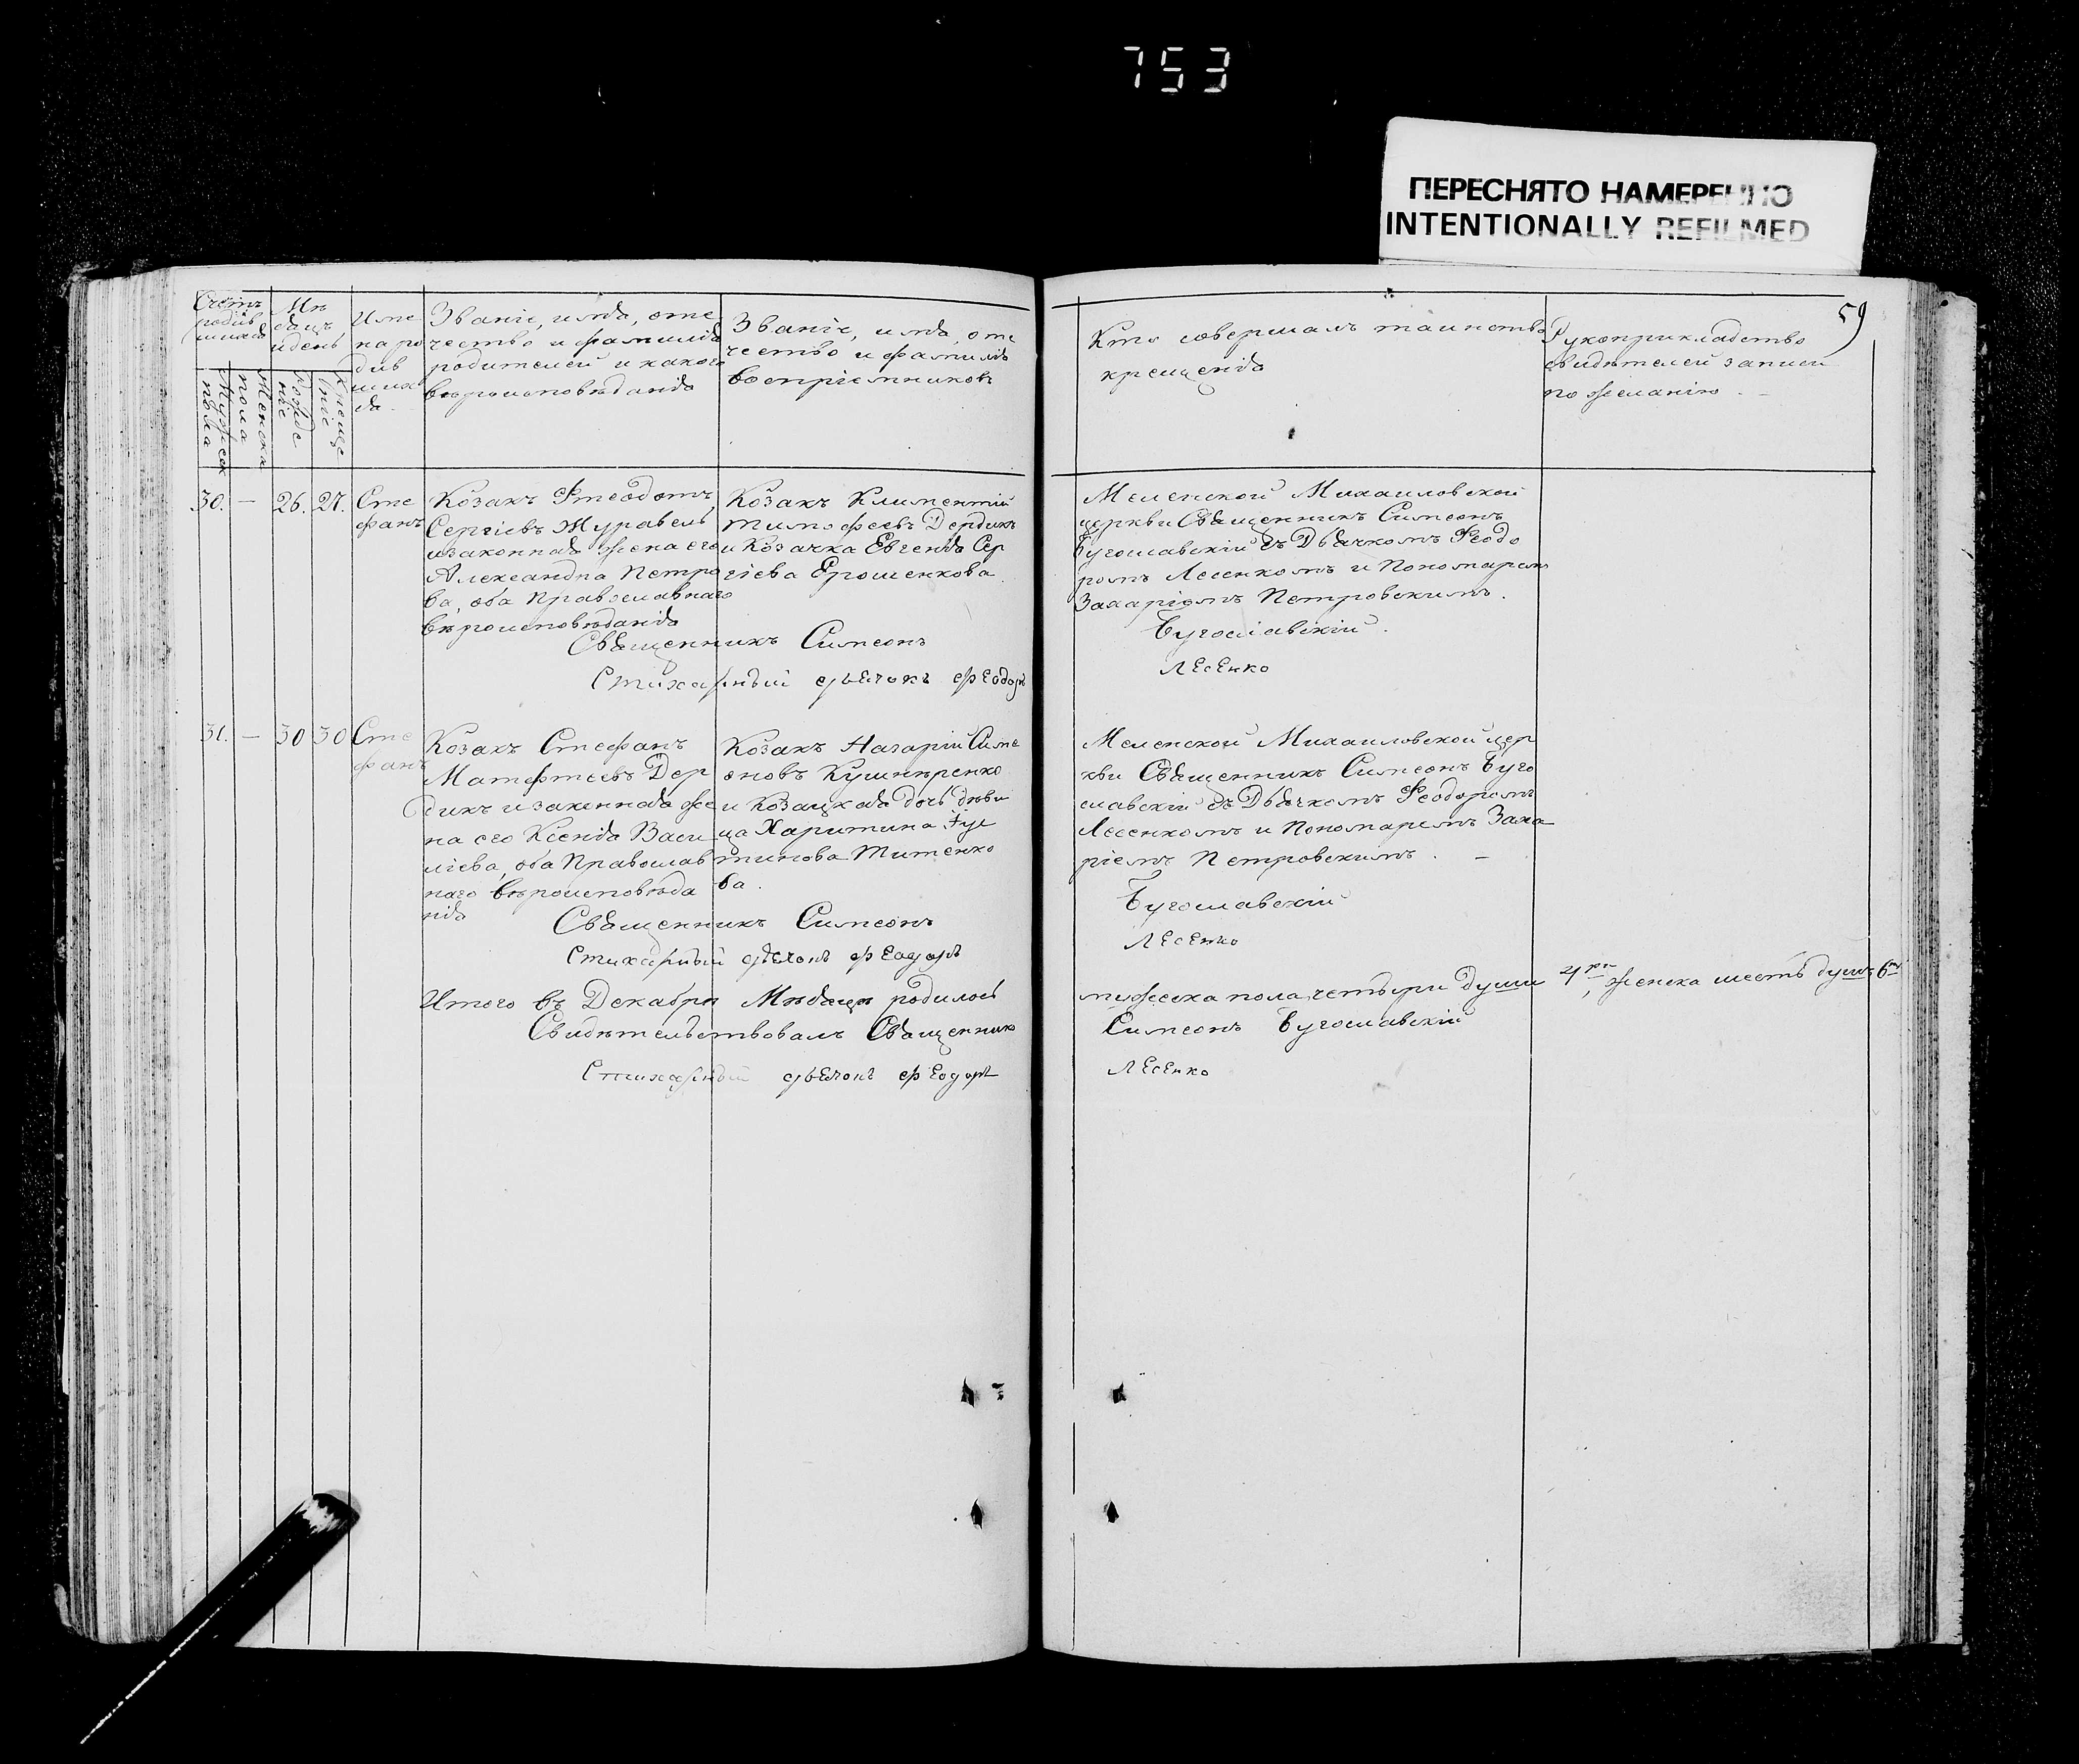 753
ПЕРЕСНЯТО НАМЕРЕННО
INTENTIONALLY REFILMED
59
Счетъ
родив
шихся
Мужеск
пола
Женска
пола
Мѣ
сяцъ
и день
Рожде
ніе
Креще
ніе
Име
на ро
див
ших
ся.
Званіе, имя, оте
чество и фамилія
родителей и какого
вѣроисповѣданія
Званіе, имя, оте
чество и фамилія
воспріемниковъ
Кто совершалъ таинство
крещенія
Рукоприкладство
свидѣтелей записи
по желанію. –
30. – 26. 27.
Сте
фанъ
Козакъ Ѳеодотъ
Сергіевъ Журавель
и законная жена его
Александра Петро
ва, оба Православнаго
вѣроисповѣданія
Козакъ Климентій
Тимофеевъ Дердикъ
и Козачка Евгенія Сер
гіева Ерошенкова.
Меленской Михаиловской
церкви Священникъ Симеонъ
Бугославскій съ Дьячкомъ Ѳеодо
ромъ Лесенкомъ и Пономаремъ
Захаріемъ Петровскимъ.
Священникъ Симеонъ Бугославскій.
Стихарный дьячокъ Феодоръ Лесенко
31. – 30 30
Сте
фанъ
Козакъ Стефанъ
Матфеевъ Дер
дикъ и законная же
на его Ксенія Васи
ліева, оба Православ
наго вѣроисповѣда
нія
Козакъ Назарій Симе
оновъ Кушнѣренко
и Козацкая дочь дѣви
ца Харитина
тинова Титенко
ва.
Меленской Михаиловской цер
кви Священникъ Симеонъ Буго
славскій съ Дьячкомъ Ѳеодоромъ
Лесенкомъ и Пономаремъ Заха
ріемъ Петровскимъ. –
Священникъ Симеонъ Бугославскій
Стихарный дьячокъ Феодоръ Лесенко
Итого въ Декабрѣ Мѣсяцѣ родилось мужеска пола четыри души 4, женска шесть душъ 6
Свидѣтельствовалъ Священникъ Симеонъ Бугославскій
Стихарный дьячокъ Феодоръ Лесенко